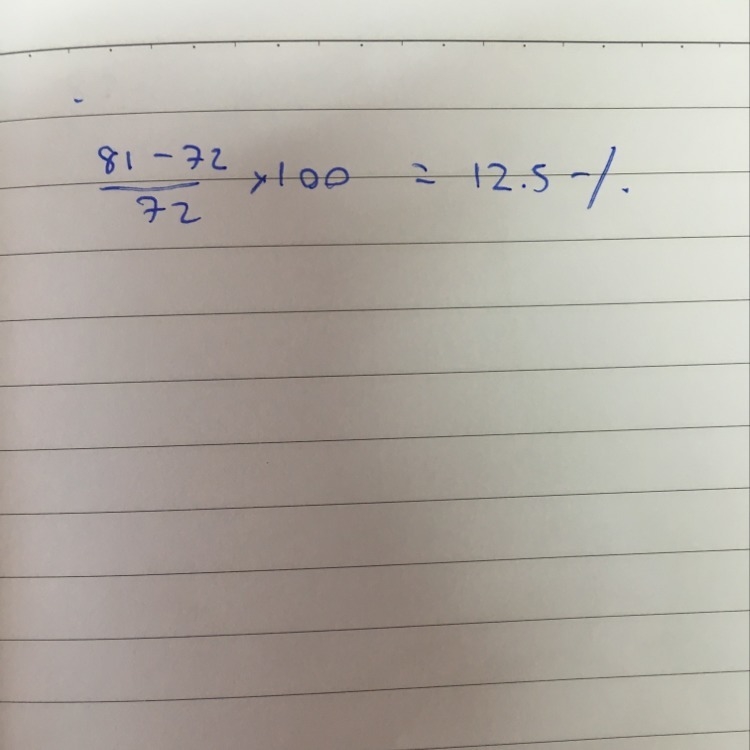 81 - 72
72 ×100 = 12.5 %